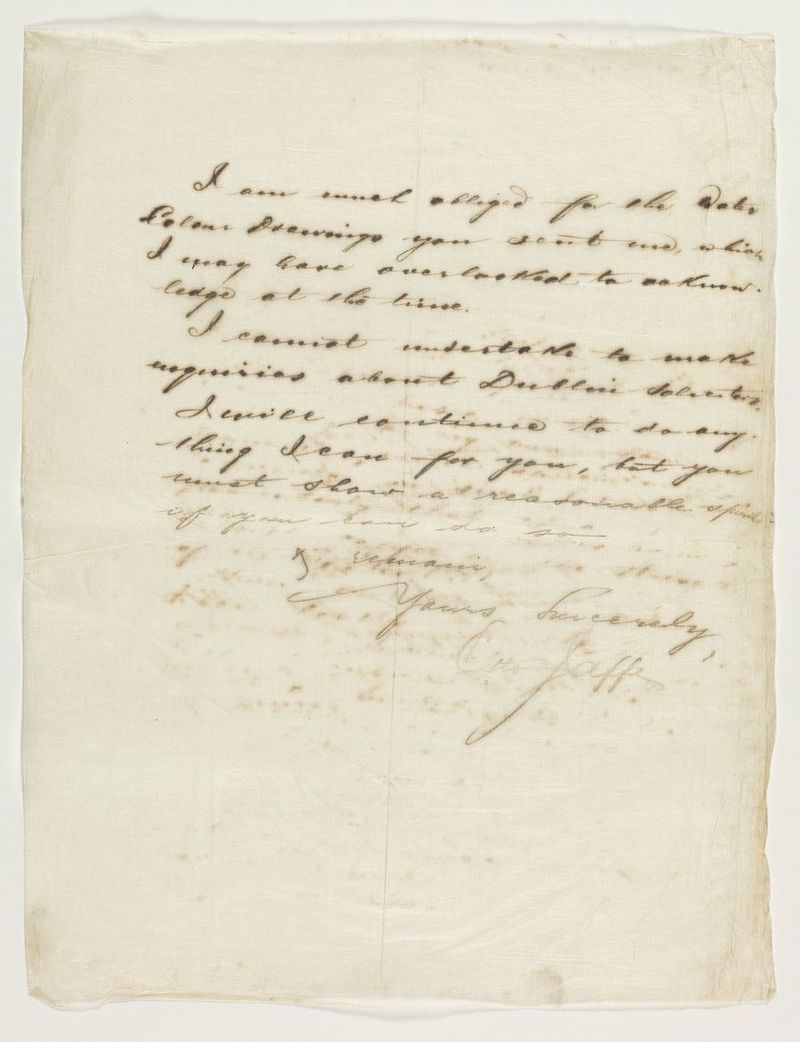 I am much obliged for the Water
Colour Drawings you sent me, which
I may have overlooked to acknow-
ledge at the time.
I cannot undertake to make
enquiries about Dublin Solicitors.
I will continue to do any-
thing I can for you, but you
must show a reasonable spirit
if you can do so
I remain,
Yours Sincerely,
Otto Jaffe